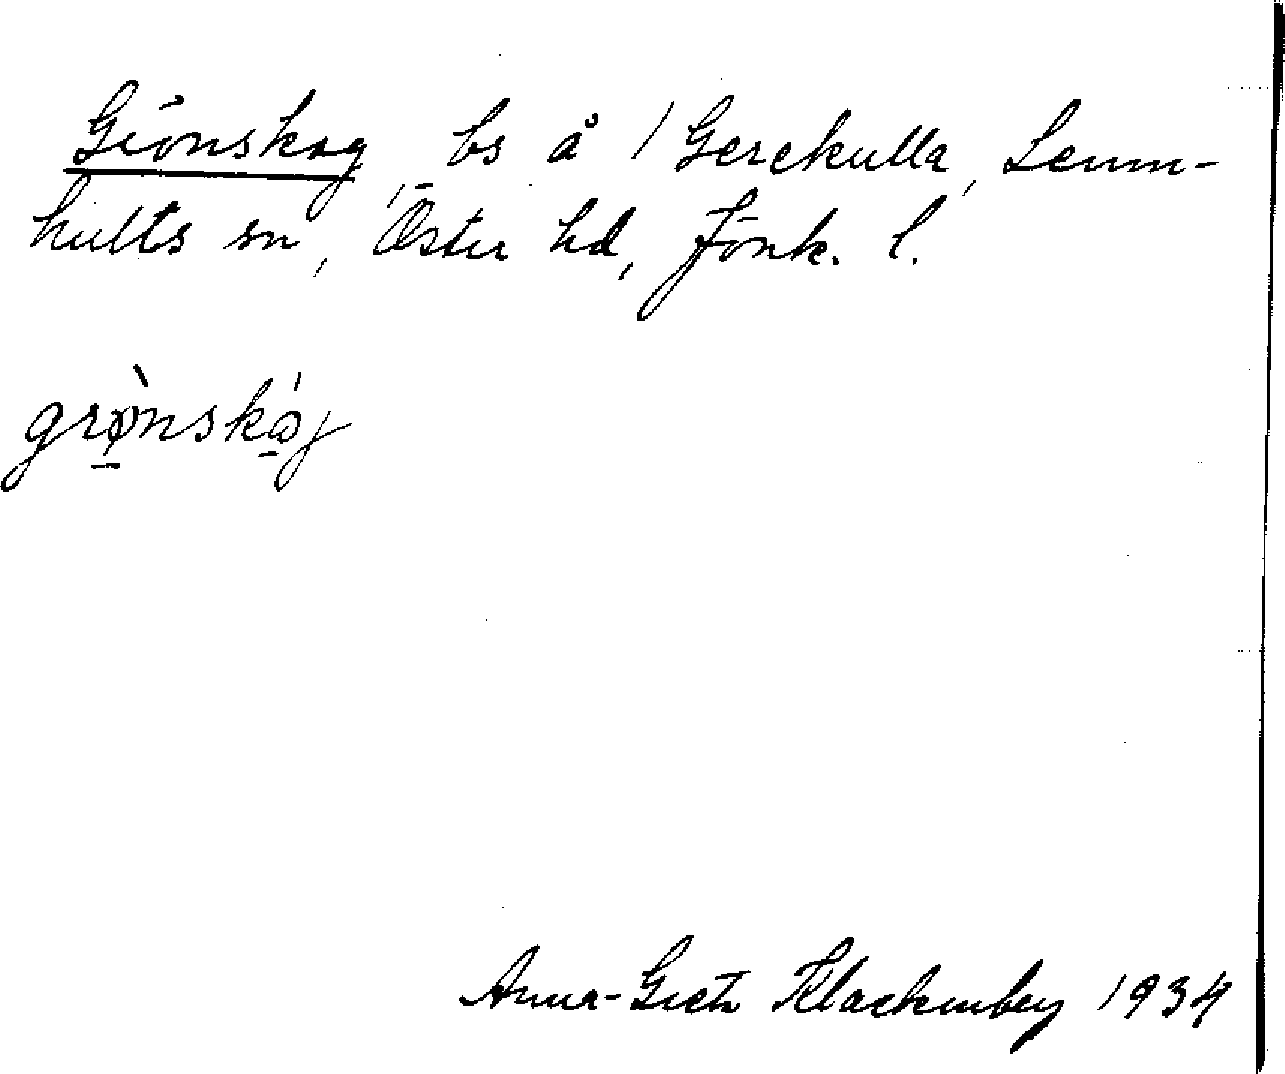 Grönskog, bs å / Gerekulla, Lemn-
hults sn, Öster hd, Jönk. l.
grø̀nskó̱j
Anna-Greta Klackenberg 1934